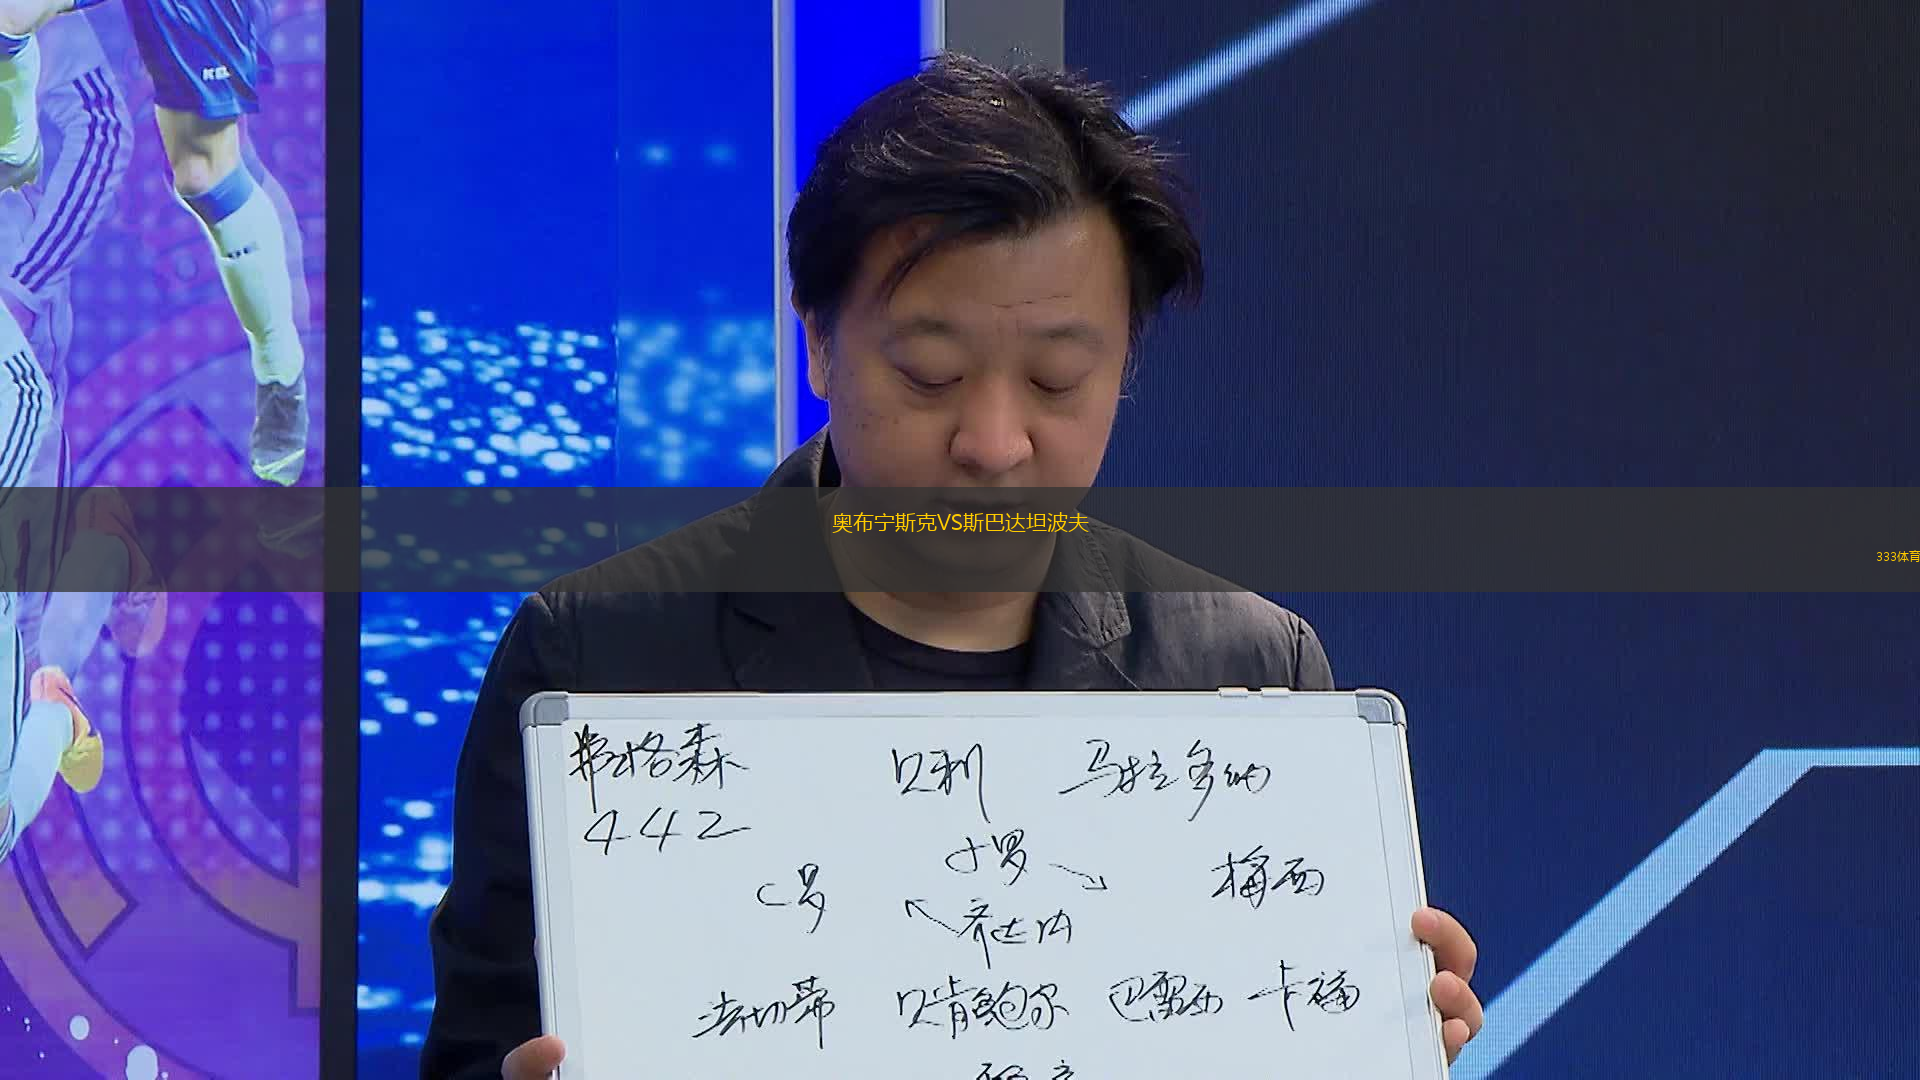 KEL
奥布宁斯克VS斯巴达坦波夫
333体育
弗格森 贝利 马拉多纳
442
小罗
C罗 梅西
齐达内
法切蒂 贝肯鲍尔 巴雷西 卡福